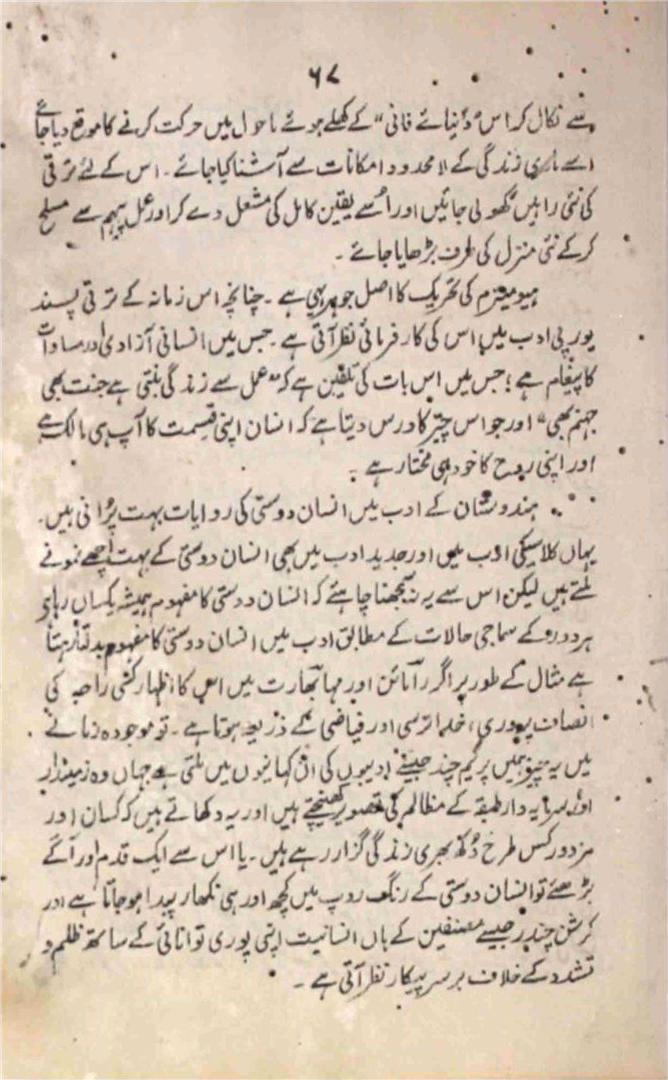 ۶۷
سے نکال کر اس "دُنیائے فانی" کے کھلے ہوئے ماحول میں حرکت کرنے کا موقع دیا جائے
اسے مادی زندگی کے لامحدود امکانات سے آشنا کیا جائے۔ اس کے لئے ترقی
کی نئی راہیں کھولی جائیں اور اُسے یقین کامل کی مشعل دے کر اور عمل پیہم سے مسلح
کر کے نئی منزل کی طرف بڑھایا جائے۔
ہیومینزم کی تحریک کا اصل جوہر یہی ہے۔ چنانچہ اس زمانہ کے ترقی پسند
یورپی ادب میں اس کی کارفرمائی نظر آتی ہے۔ جس میں انسانی آزادی اور مساوات
کا پیغام ہے؛ جس میں اس بات کی تلقین ہے کہ "عمل سے زندگی بنتی ہے جنت بھی
جہنم بھی" اور جو اس چیز کا درس دیتا ہے کہ انسان اپنی قسمت کا آپ ہی مالک ہے
اور اپنی روح کا خود ہی مختار ہے۔
ہندوستان کے ادب میں انسان دوستی کی روایات بہت پُرانی ہیں۔
یہاں کلاسیکی ادب میں اور جدید ادب میں بھی انسان دوستی کے بہت اچھے نمونے
ملتے ہیں لیکن اس سے یہ نہ سمجھنا چاہئے کہ انسان دوستی کا مفہوم ہمیشہ یکساں رہا ہے
ہر دور کے سماجی حالات کے مطابق ادب میں انسان دوستی کا مفہوم بدلتا رہتا
ہے مثال کے طور پر اگر رامائن اور مہا بھارت میں اس کا اظہار کسی راجہ کی
انصاف پروری، خدا ترسی اور فیاضی کے ذریعہ ہوتا ہے۔ تو موجودہ زمانے
میں یہ چیز ہمیں پریم چند جیسے ادیبوں کی ان کہانیوں میں ملتی ہے جہاں وہ زمیندار
اور سرمایہ دار طبقہ کے مظالم کی تصویر کھینچتے ہیں اور یہ دکھاتے ہیں کہ کسان اور
مزدور کس طرح دُکھ بھری زندگی گزار رہے ہیں۔ یا اس سے ایک قدم اور آگے
بڑھئے تو انسان دوستی کے رنگ روپ میں کچھ اور ہی نکھار پیدا ہو جاتا ہے اور
کرشن چندر جیسے مصنفین کے ہاں انسانیت اپنی پوری توانائی کے ساتھ ظلم و
تشدد کے خلاف برسرِ پیکار نظر آتی ہے۔